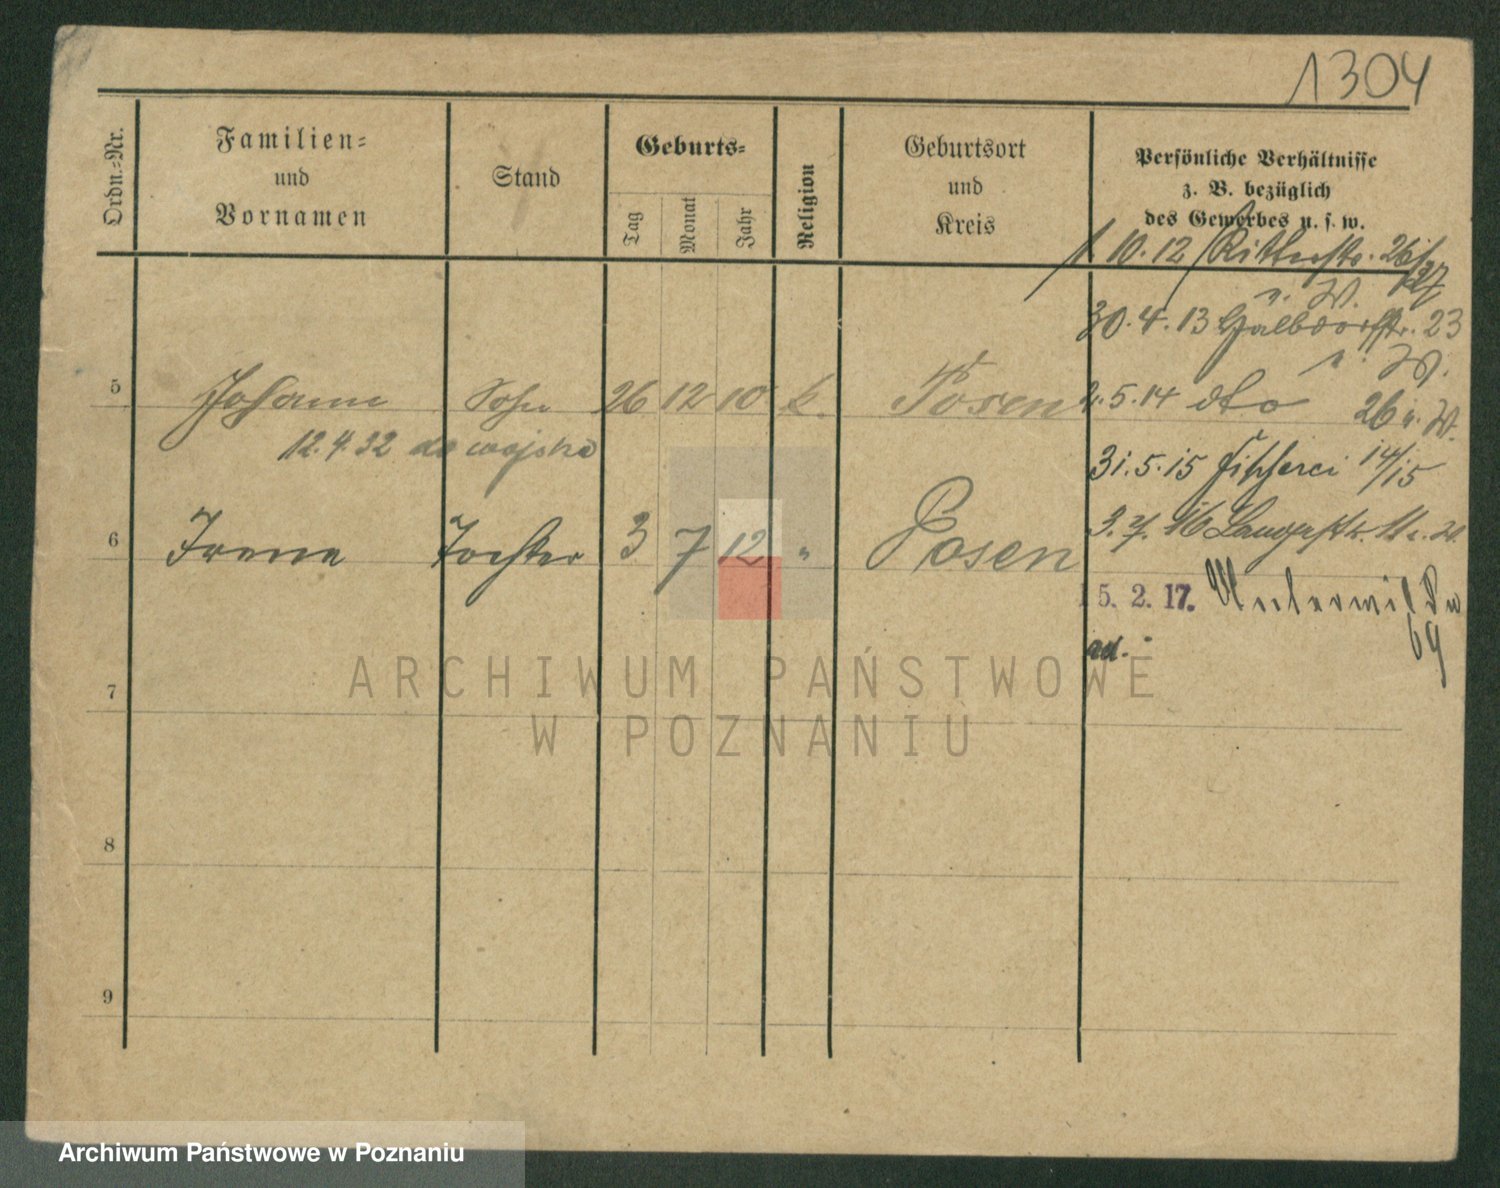 1304
Ordn.-Nr.
Familien-
und
Vornamen
Stand
Geburts-
Tag
Monat
Jahr
Religion
Geburtsort
und
Kreis
Persönliche Verhältnisse
z. B. bezüglich
des Gewerbes u. s. w.
1 10.12 Ritterstr. 26/27
v. W.
30.4.13 Halbdorfstr. 23
v. W.
5 Johann Sohn 26 12 10 k. Posen
2.5.14 dto 26 v. W.
12.4.32 do wojska
31.5.15 Fischerei 14/15
6 Irene Tochter 3 7 12 " Posen
3.7.16 Langestr. 11 v. W.
15. 2. 17. Unterwilda
69
ad.
7
8
9
ARCHIWUM PAŃSTWOWE
W POZNANIU
Archiwum Państwowe w Poznaniu